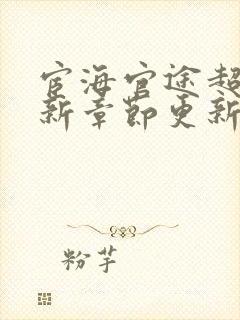 宦海官途超
新章节更新
粉芋